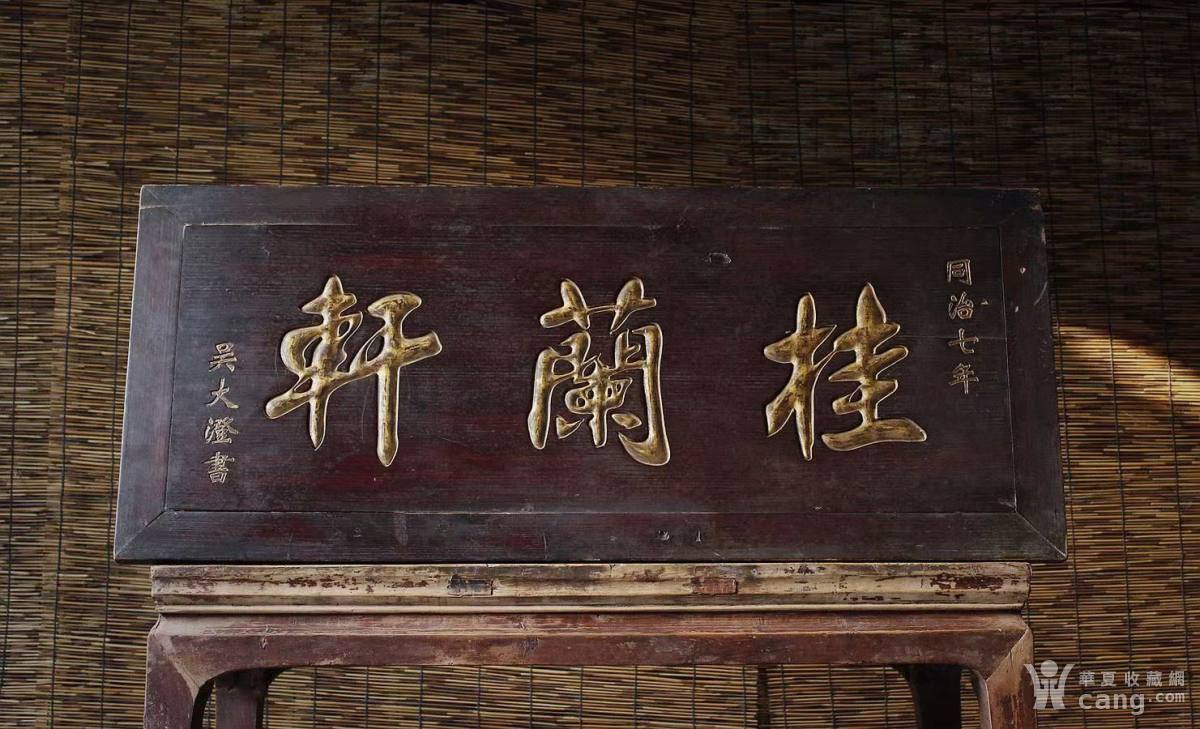 同治七年
桂蘭軒
吳大澄書
華夏收藏網
cang.com